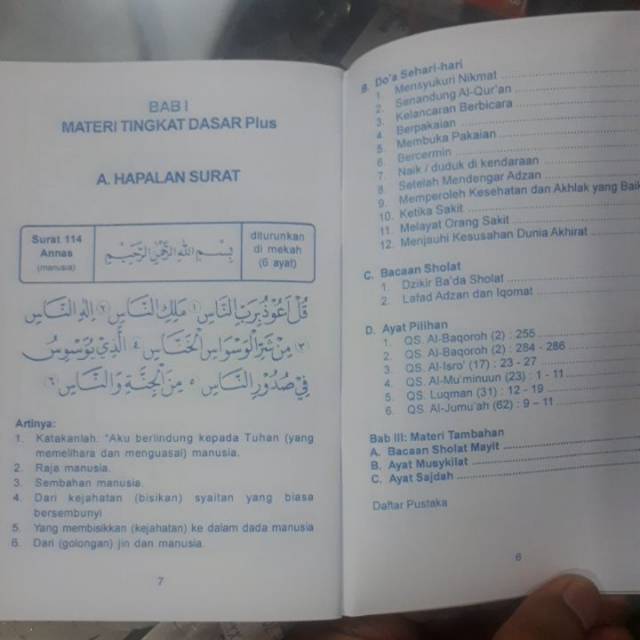 BAB I
MATERI TINGKAT DASAR Plus
A. HAPALAN SURAT
Surat 114
Annas
(manusia)
بِسْمِ اللهِ الرَّحْمٰنِ الرَّحِيْمِ
diturunkan
di mekah
(6 ayat)
قُلْ اَعُوْذُ بِرَبِّ النَّاسِ ١ مَلِكِ النَّاسِ ٢ اِلٰهِ النَّاسِ
٣ مِنْ شَرِّ الْوَسْوَاسِ الْخَنَّاسِ ٤ الَّذِيْ يُوَسْوِسُ
فِيْ صُدُوْرِ النَّاسِ ٥ مِنَ الْجِنَّةِ وَالنَّاسِ ٦
Artinya:
1. Katakanlah: "Aku berlindung kepada Tuhan (yang
memelihara dan menguasai) manusia.
2. Raja manusia.
3. Sembahan manusia.
4. Dari kejahatan (bisikan) syaitan yang biasa
bersembunyi
5. Yang membisikkan (kejahatan) ke dalam dada manusia
6. Dari (golongan) jin dan manusia.
7
B. Do'a Sehari-hari
1. Mensyukuri Nikmat
2. Senandung Al-Qur'an
3. Kelancaran Berbicara
4. Berpakaian
5. Membuka Pakaian
6. Bercermin
7. Naik / duduk di kendaraan
8. Setelah Mendengar Adzan
9. Memperoleh Kesehatan dan Akhlak yang Baik
10. Ketika Sakit
11. Melayat Orang Sakit
12. Menjauhi Kesusahan Dunia Akhirat
C. Bacaan Sholat
1. Dzikir Ba'da Sholat
2. Lafad Adzan dan Iqomat
D. Ayat Pilihan
1. QS. Al-Baqoroh (2) : 255
2. QS. Al-Baqoroh (2) : 284 - 286
3. QS. Al-Isro' (17) : 23 - 27
4. QS. Al-Mu'minuun (23) : 1 - 11
5. QS. Luqman (31) : 12 - 19
6. QS. Al-Jumu'ah (62) : 9 – 11
Bab III: Materi Tambahan
A. Bacaan Sholat Mayit
B. Ayat Musykilat
C. Ayat Sajdah
Daftar Pustaka
6